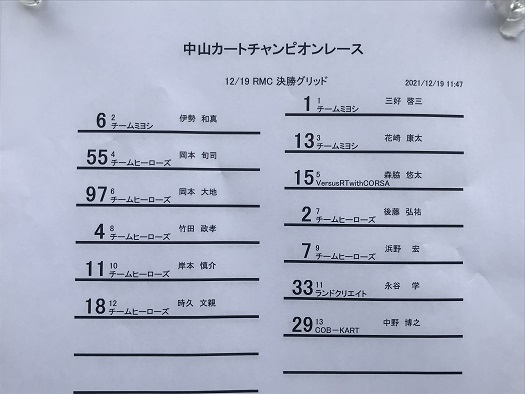 中山カートチャンピオンレース
12/19 RMC 決勝グリッド
2021/12/19 11:47
1 1 三好 啓三
チームミヨシ
6 2 伊勢 和真
チームミヨシ
13 3 花崎 康太
チームミヨシ
55 4 岡本 旬司
チームヒーローズ
15 5 森脇 悠太
VersusRTwithCORSA
97 6 岡本 大地
チームヒーローズ
2 7 後藤 弘祐
チームヒーローズ
4 8 竹田 政孝
チームヒーローズ
7 9 浜野 宏
チームヒーローズ
11 10 岸本 慎介
チームヒーローズ
33 11 永谷 学
ランドクリエイト
18 12 時久 文親
チームヒーローズ
29 13 中野 博之
COB－KART